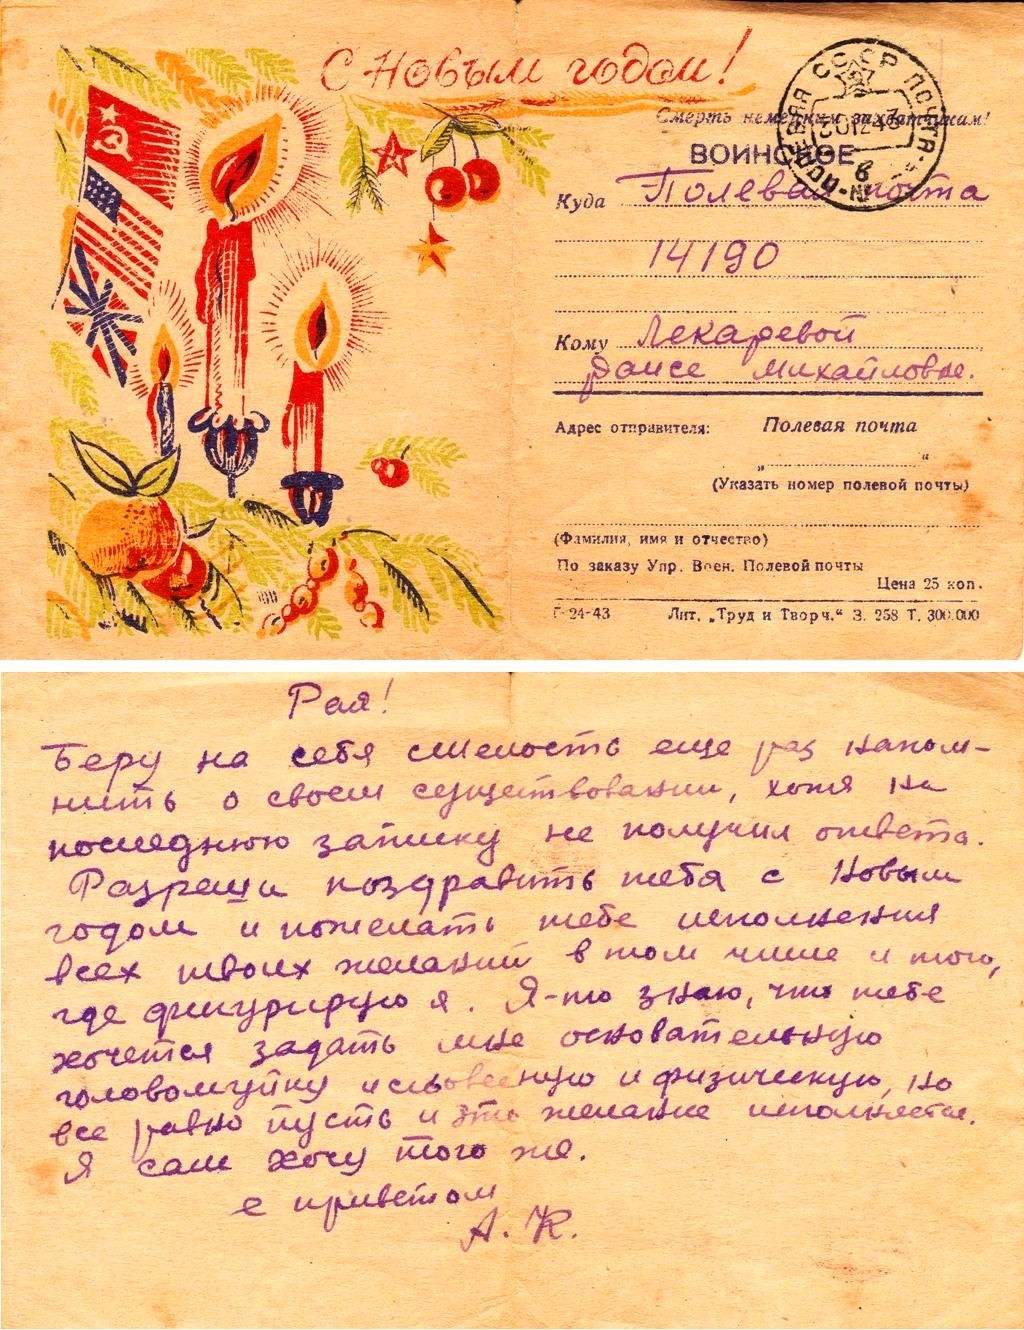 С Новым годом!
ПОЛЕВАЯ СССР ПОЧТА
Смерть немецким захватчикам!
30 12 43
ВОИНСКОЕ
Куда Полевая почта
14190
Кому Лекаревой
Раисе Михайловне.
Адрес отправителя: Полевая почта
„ “
(Указать номер полевой почты)
(Фамилия, имя и отчество)
По заказу Упр. Воен. Полевой почты
Цена 25 коп.
Г-24-43 Лит. „Труд и Творч.“ З. 258 Т. 300.000
Рая!
Беру на себя смелость еще раз напом-
нить о своем существовании, хотя на
последнюю записку не получил ответа.
Разреши поздравить тебя с Новым
годом и пожелать тебе исполнения
всех твоих желаний в том числе и того,
где фигурирую я. Я-то знаю, что тебе
хочется задать мне основательную
головомуйку и словесную и физическую, но
все равно пусть и это желание исполняется.
Я сам хочу того же.
с приветом
А. К.